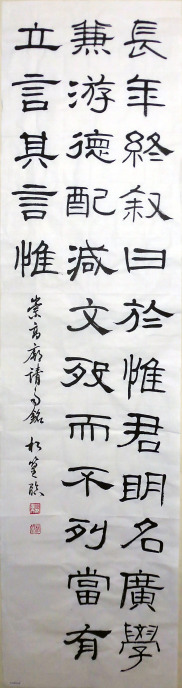 長年終叙曰於惟君明名廣學
兼游德配減文歿而不列當有
立言其言惟
崇高廟請雨銘 松篁臨